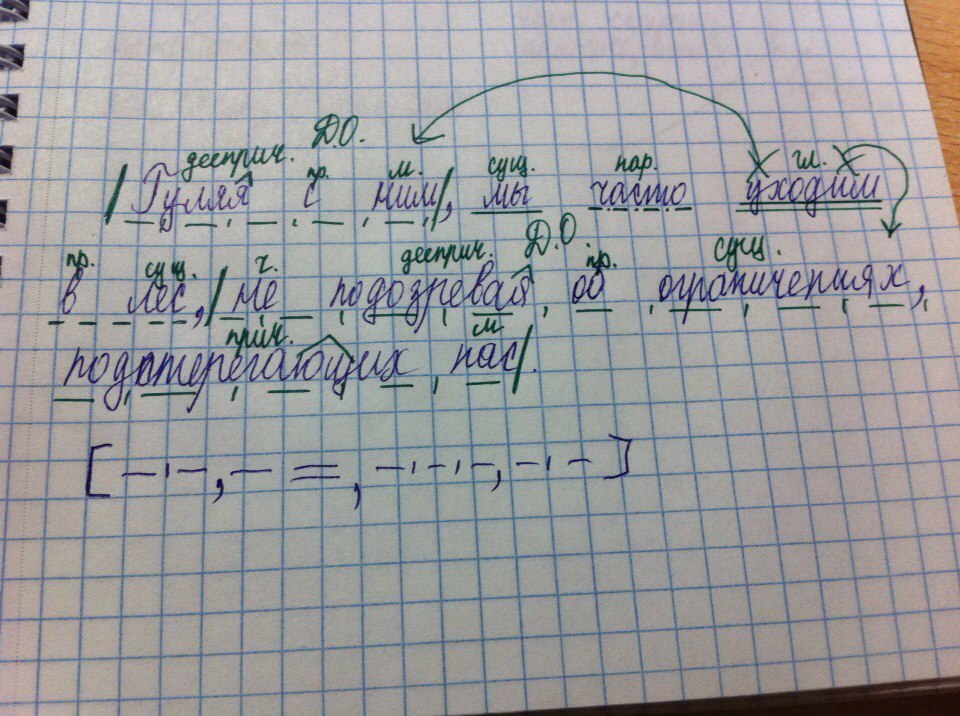 дееприч. Д.О. пр. м. сущ. нар. гл.
Гуляя с ним, мы часто уходим
пр. сущ. ч. дееприч. Д.О. пр. сущ.
в лес, не подозревая, об ограничениях,
прич. м
подстерегающих нас.